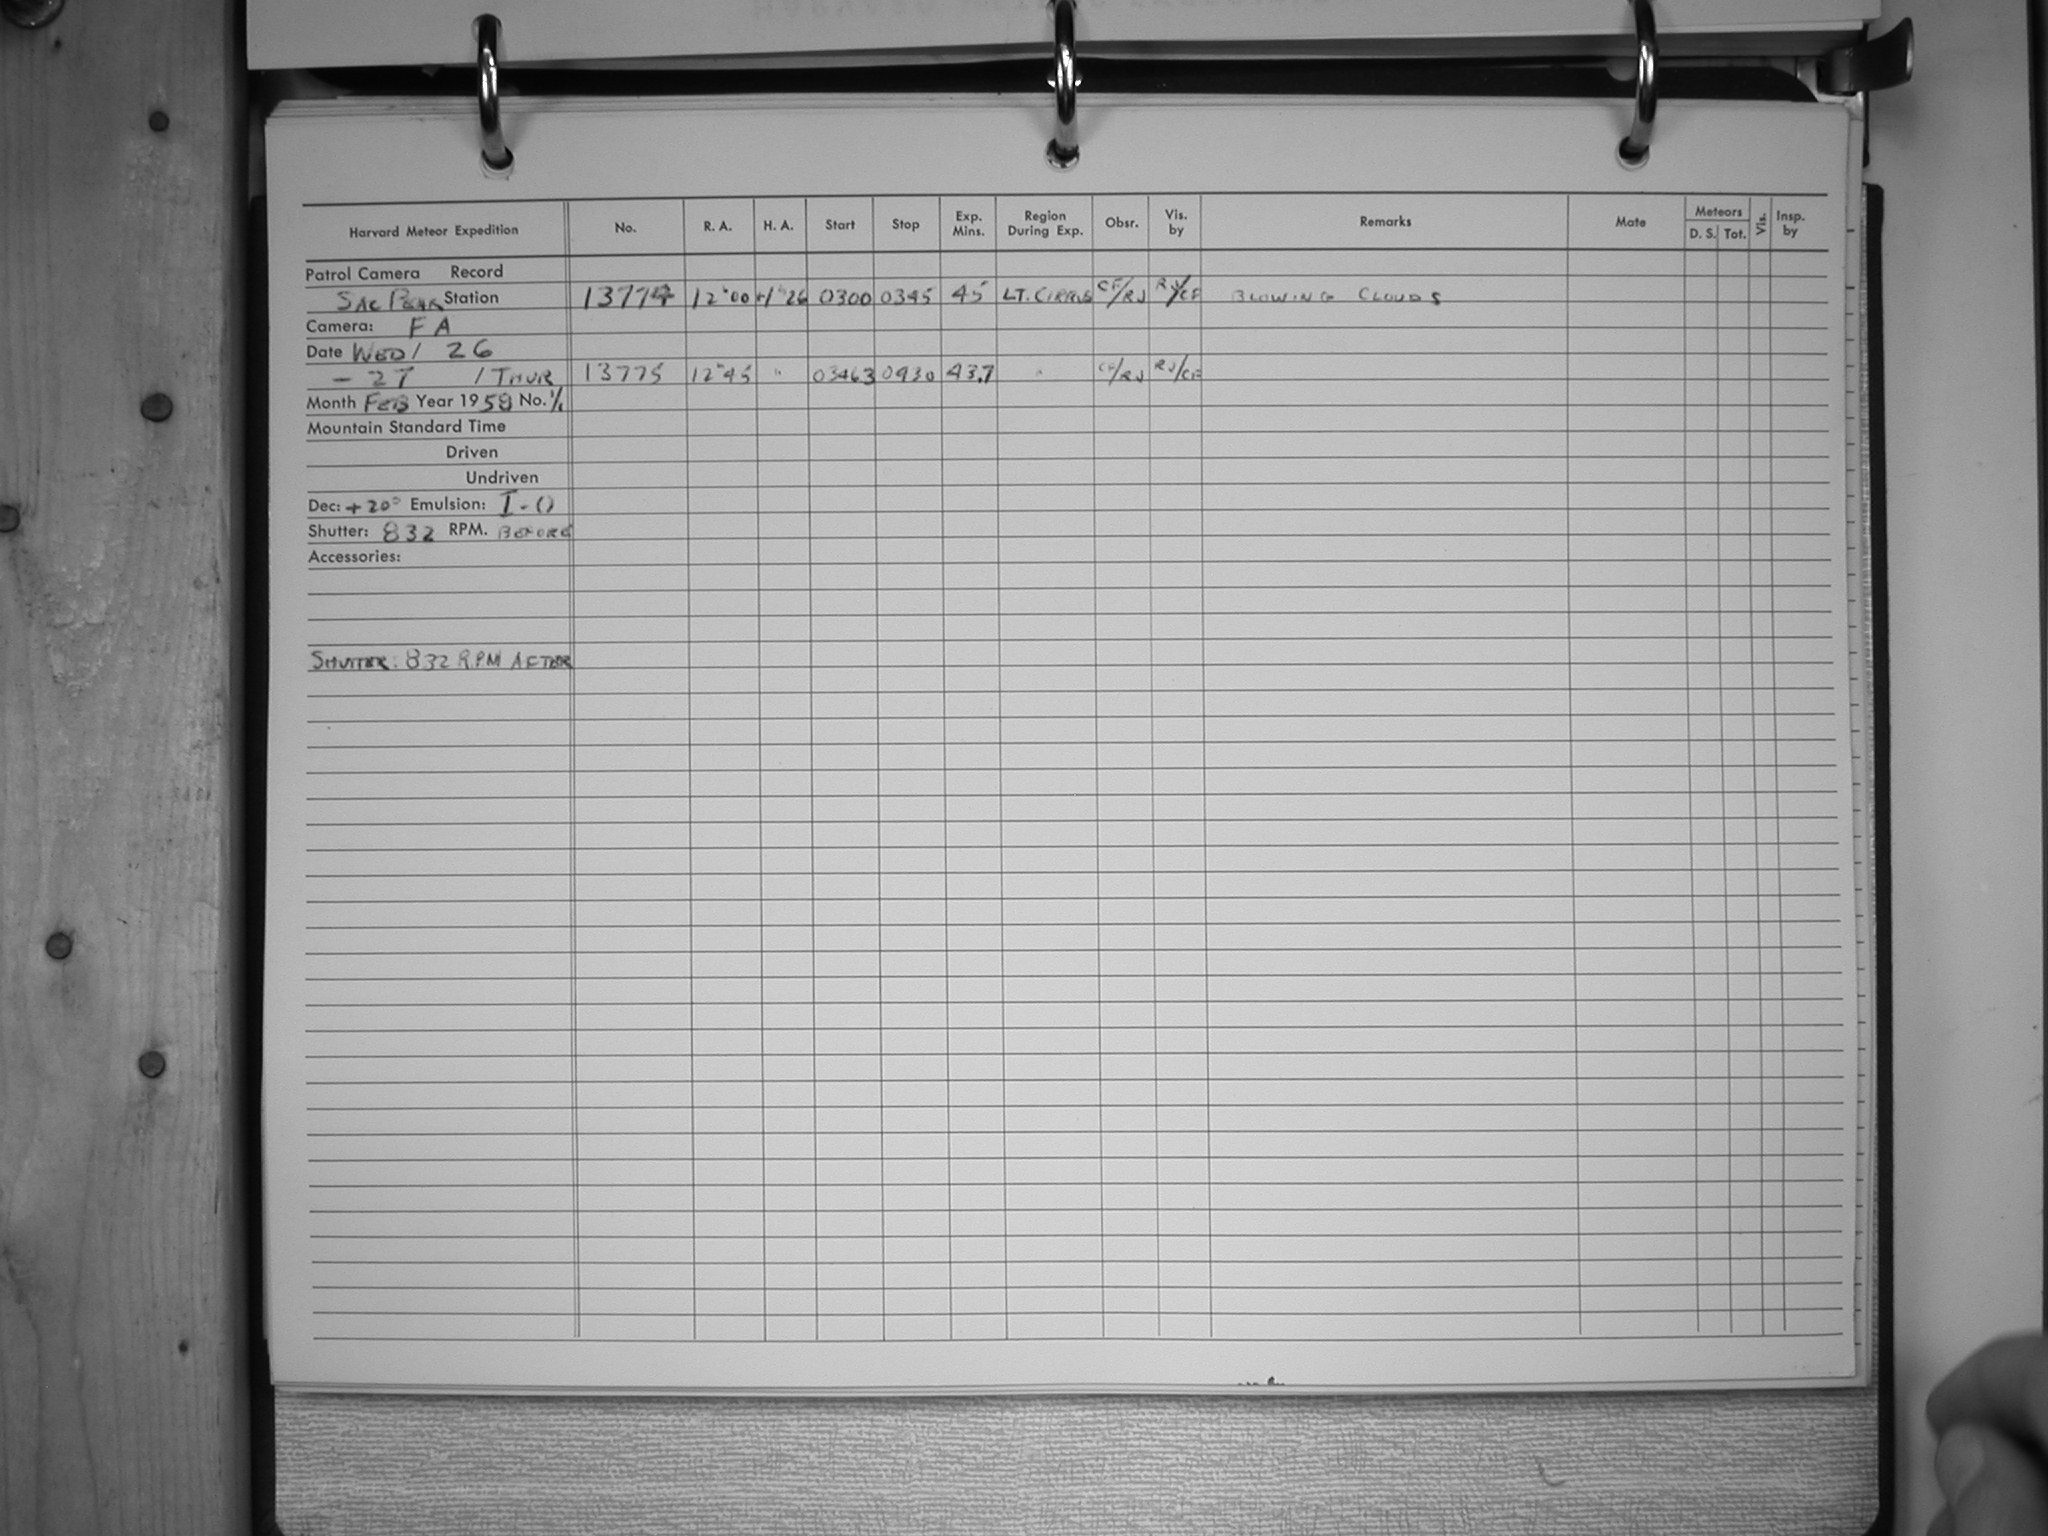 Harvard Meteor Expedition No. R. A. H. A. Start Stop Exp. Mins. Region During Exp. Obsr. Vis. by Remarks Mate Meteors D. S. Tot. Vis. Insp. by
Patrol Camera Record
SAC PEAK Station 13774 12 00 +1 26 0300 0345 45 LT. CIRRUS CF/RJ RJ/CF BLOWING CLOUDS
Camera: FA
Date WED/ 26
- 27 / THUR 13775 12 45 " 03463 0430 43.7 " CF/RJ RJ/CF
Month FEB Year 1958 No. 1/1
Mountain Standard Time
Driven
Undriven
Dec: +20° Emulsion: I-O
Shutter: 832 RPM. BEFORE
Accessories:
SHUTTER: 832 R.P.M AFTER